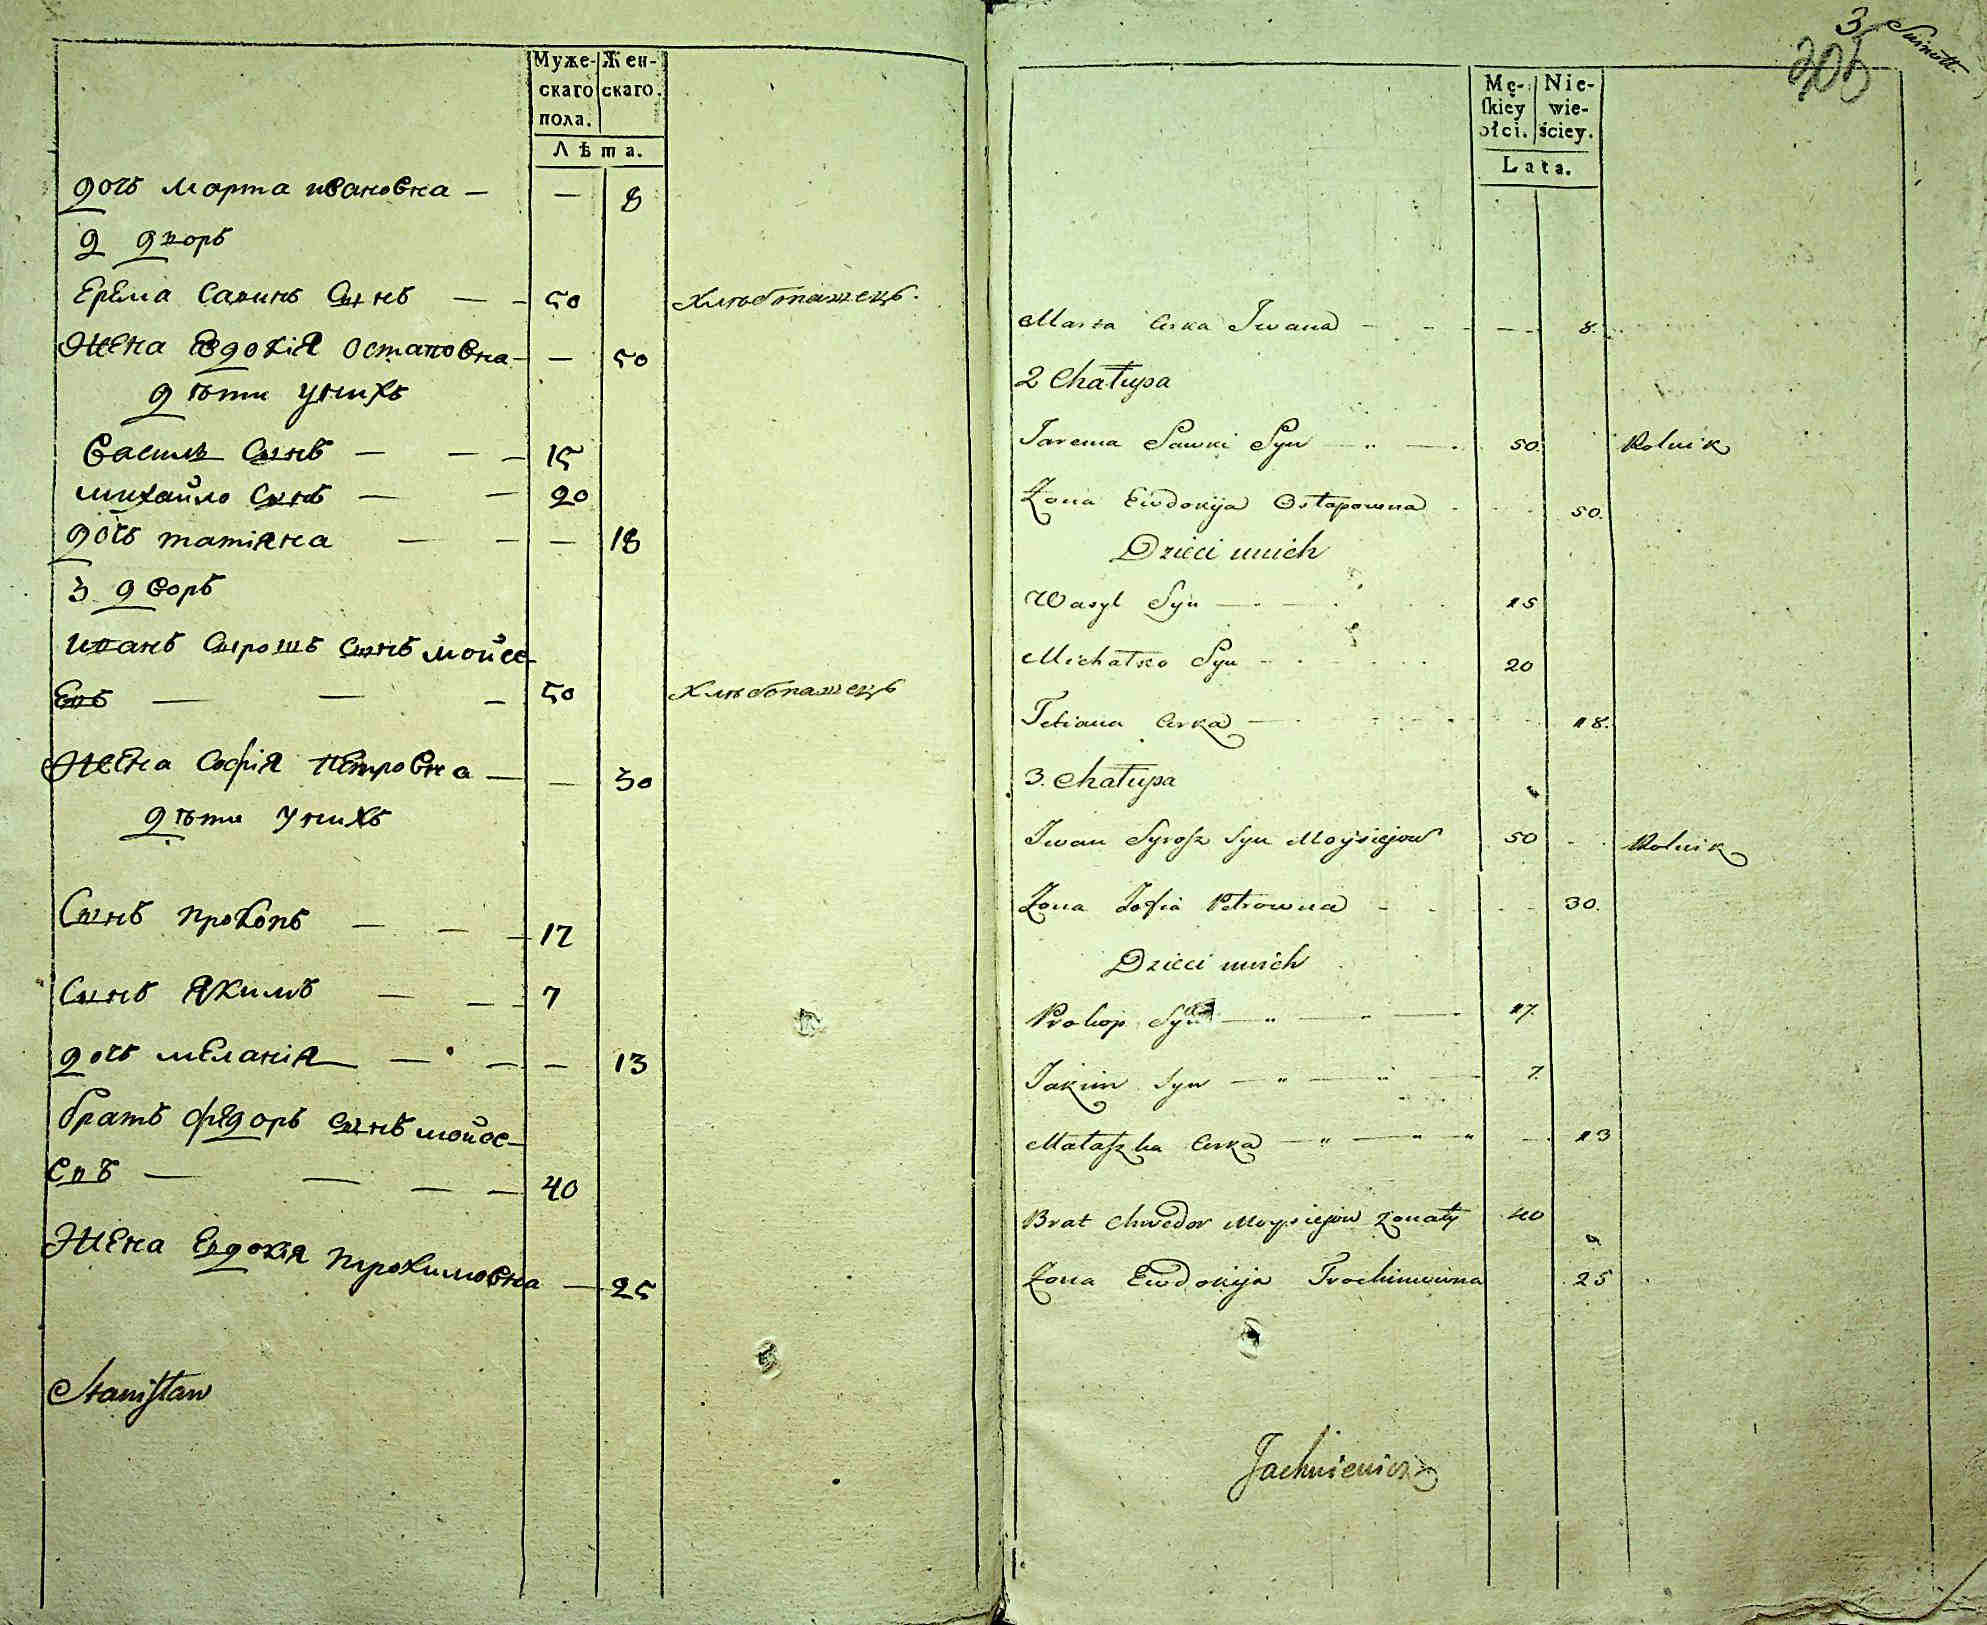 Муже- Жен-
скаго скаго.
пола.
Лѣта.
дочь марта ивановна — — 8
2 дворъ
Ерема Савинъ Сынъ — — 50 хлѣбопашецъ.
Жена Евдокія Остаповна — — 50
дѣти унихъ
Василь Сынъ — — — 15
михайло Сынъ — — 20
дочь татіяна — — — 18
3 дворъ
иванъ Сырошъ Сынъ мойсе-
евъ — — — 50 хлѣбопашецъ
Жена Софія Петровна — — 30
дѣти унихъ
Сынъ прокопъ — — — 17
Сынъ якимъ — — — 7
дочь меланія — — — 13
братъ федоръ Сынъ мойсе-
евъ — — — — 40
Жена Евдокія трохимовна — 25
Staniſław
3
205
Mę- Nie-
ſkiey wie-
płci. ściey.
Lata.
Marta Corka Iwana — 8.
2 Chałupa
Jarema Sawki Syn — 50. Rolnik
Żona Ewdokija Ostapowna 50.
Dzieci unich
Wasyl Syn — 15
Michałko Syn 20
Tetiana Corka — 18.
3. Chałupa
Iwan Syrosz Syn Moysiejow 50 Rolnik
Żona Zofia Petrowna 30.
Dzieci unich
Prokop Syn — " — " — 17.
Jakim Syn — " — " — 7.
Małaszka Corka — " — " — " 13
Brat Chwedor Moysiejow Żonaty 40
Żona Ewdokija Trochimowna 25
Jachniewicz